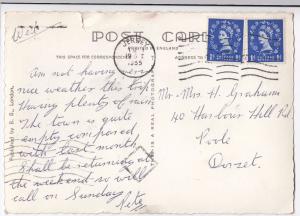 Wed.
POST CARD
PRINTED IN ENGLAND
THIS SPACE FOR CORRESPONDENCE
ADDRESS TO
JERSEY
1955
Am not having very
nice weather this tour
Having plenty of rain
The town is quite
empty compared
with last month
Shall be returning at
the weekend so will
call on Sunday
Mr. Mrs. H. Graham
40 Harbour Hill Rd.
Poole
Dorset.
IS A REAL
London.